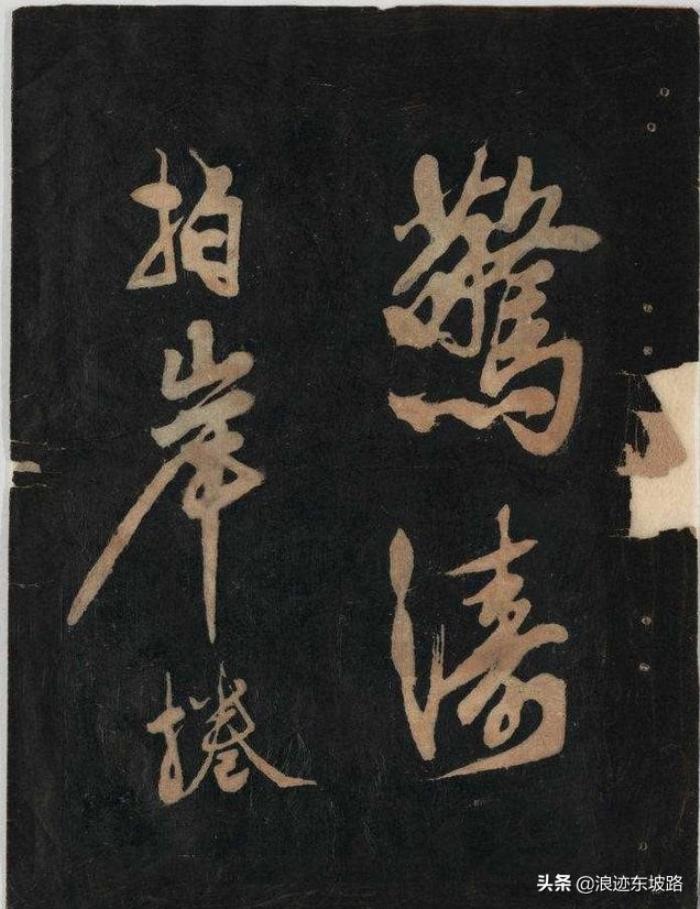 驚濤
拍岸捲
头条 @浪迹东坡路